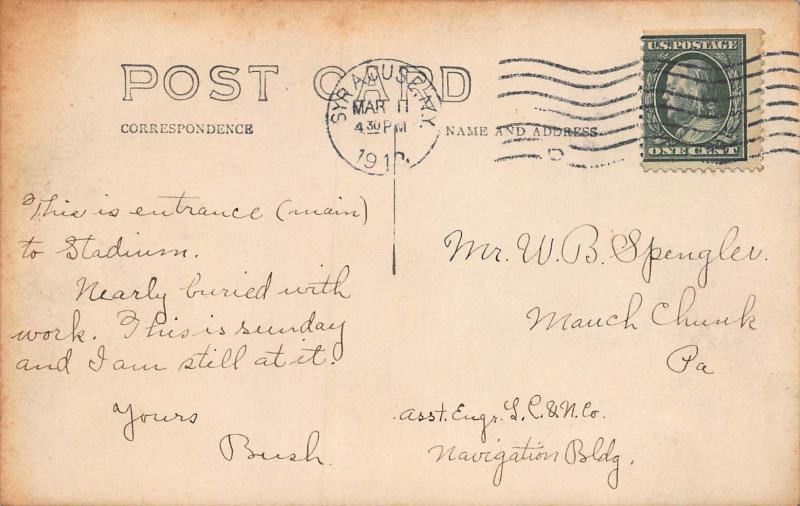 POST CARD
CORRESPONDENCE
NAME AND ADDRESS
SYRACUSE, N.Y.
MAR 11
4 30 PM
1910
D
U.S. POSTAGE
ONE CENT
This is entrance (main)
to Stadium.
Nearly buried with
work. This is sunday
and I am still at it.
Yours
Bush.
Mr. W. B. Spengler.
Mauch Chunk
Pa
Asst. Engr. L. C. & N. Co.
Navigation Bldg.